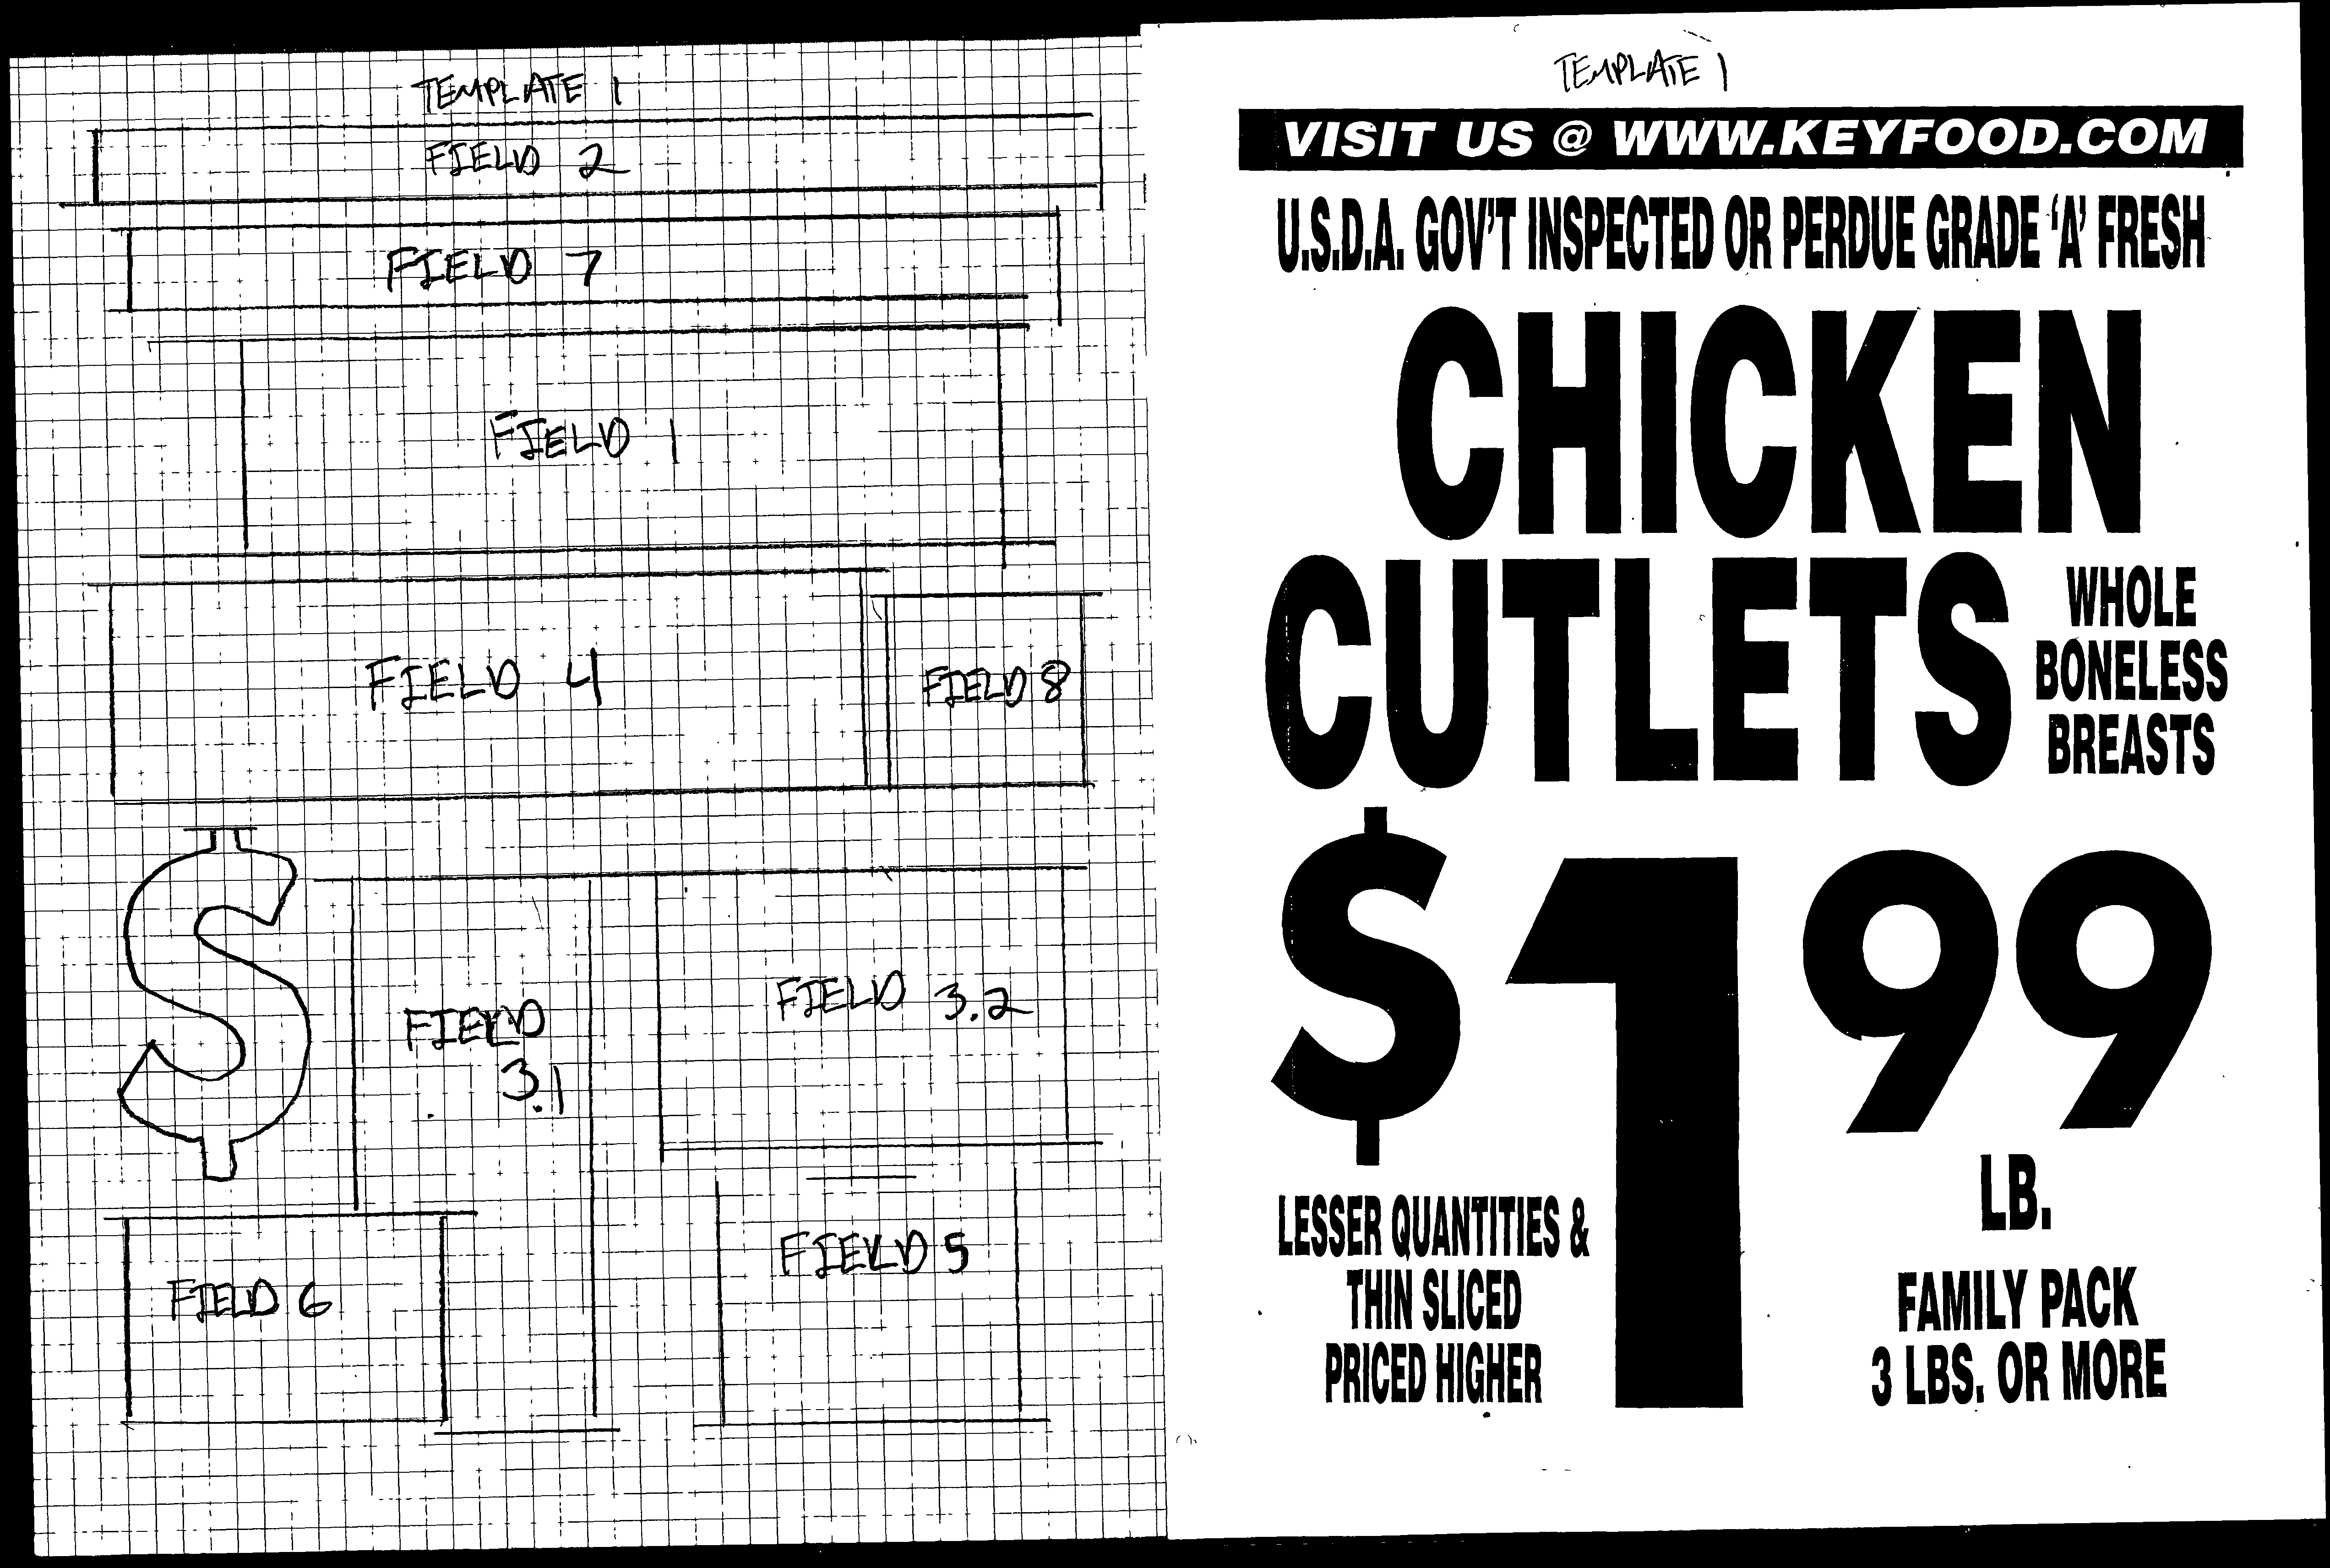 TEMPLATE 1
FIELD 2
FIELD 7
FIELD 1
FIELD 4
FIELD 8
$
FIELD
3.1
FIELD 3.2
FIELD 6
FIELD 5
TEMPLATE 1
VISIT US @ WWW.KEYFOOD.COM
U.S.D.A. GOV'T INSPECTED OR PERDUE GRADE 'A' FRESH
CHICKEN
CUTLETS
WHOLE
BONELESS
BREASTS
$1 99
LB.
LESSER QUANTITIES &
THIN SLICED
PRICED HIGHER
FAMILY PACK
3 LBS. OR MORE